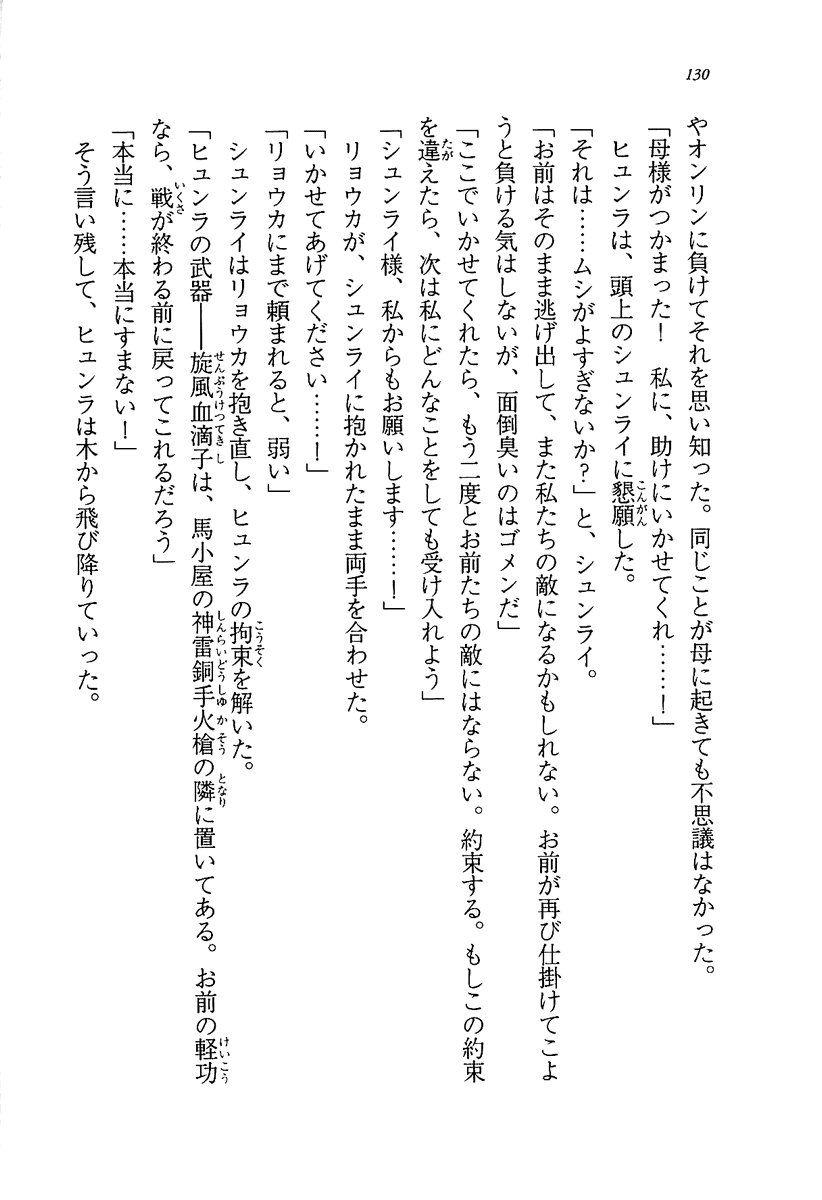 130
やオンリンに負けてそれを思い知った。同じことが母に起きても不思議はなかった。
「母様がつかまった！　私に、助けにいかせてくれ……！」
ヒュンラは、頭上のシュンライに懇願した。
「それは……ムシがよすぎないか？」と、シュンライ。
「お前はそのまま逃げ出して、また私たちの敵になるかもしれない。お前が再び仕掛けてこよ
うと負ける気はしないが、面倒臭いのはゴメンだ」
「ここでいかせてくれたら、もう二度とお前たちの敵にはならない。約束する。もしこの約束
を違えたら、次は私にどんなことをしても受け入れよう」
「シュンライ様、私からもお願いします……！」
リョウカが、シュンライに抱かれたまま両手を合わせた。
「いかせてあげてください……！」
「リョウカにまで頼まれると、弱い」
シュンライはリョウカを抱き直し、ヒュンラの拘束を解いた。
「ヒュンラの武器――旋風血滴子は、馬小屋の神雷銅手火槍の隣に置いてある。お前の軽功
なら、戦が終わる前に戻ってこれるだろう」
「本当に……本当にすまない！」
そう言い残して、ヒュンラは木から飛び降りていった。